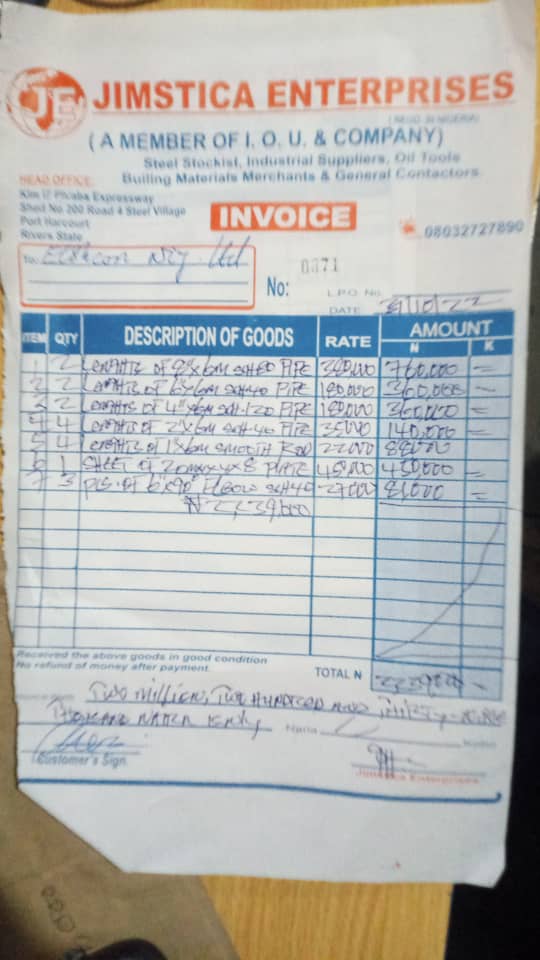 JE
JIMSTICA ENTERPRISES
(REGD. IN NIGERIA)
(A MEMBER OF I. O. U. & COMPANY)
Steel Stockist, Industrial Suppliers, Oil Tools
Builing Materials Merchants & General Contactors
HEAD OFFICE:
Km 17 Phcaba Expressway
Shed No 200 Road 4 Steel Village
Port Harcourt
Rivers State
INVOICE
08032727890
To: Nig. Ltd
No: 0371
L.P.O No.
DATE 31/10/22
ITEM QTY DESCRIPTION OF GOODS RATE AMOUNT
N K
1 2 Lenghts of 8"x6m sch80 Pipe 380,000 760,000 =
2 2 Lenghts of 6"x6m sch40 Pipe 180,000 360,000 =
3 2 Lenghts of 4"x6m sch120 Pipe 180,000 360,000 =
4 4 Lenghts of 2"x6m sch40 Pipe 35,000 140,000 =
5 4 Lenghts of 1"x6m smooth Rod 22,000 88,000
6 1 Sheet of 20mmx4x8 Plate 450,000 450,000 =
7 3 Pcs of 6"x90° Elbow sch40 27,000 81,000 =
₦2,239,000
Received the above goods in good condition
No refund of money after payment.
TOTAL N 2,239,000
Two million, Two hundred and Thirty-nine
Thousand naira only Naira Kobo
Customer's Sign.
Jimstica Enterprises